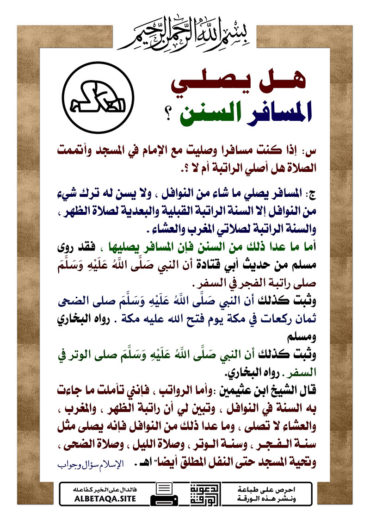 بسم الله الرحمن الرحيم
هل يصلي
المسافر السنن ؟
الصلاة
س: إذا كنت مسافرا وصليت مع الإمام في المسجد وأتممت
الصلاة هل أصلي الراتبة أم لا ؟.
ج: المسافر يصلي ما شاء من النوافل ، ولا يسن له ترك شيء
من النوافل إلا السنة الراتبة القبلية والبعدية لصلاة الظهر ،
والسنة الراتبة لصلاتي المغرب والعشاء .
أما ما عدا ذلك من السنن فإن المسافر يصليها ، فقد روى
مسلم من حديث أبي قتادة أن النبي صَلَّى اللهُ عَلَيْهِ وَسَلَّمَ
صلى راتبة الفجر في السفر .
وثبت كذلك أن النبي صَلَّى اللهُ عَلَيْهِ وَسَلَّمَ صلى الضحى
ثمان ركعات في مكة يوم فتح الله عليه مكة . رواه البخاري
ومسلم
وثبت كذلك أن النبي صَلَّى اللهُ عَلَيْهِ وَسَلَّمَ صلى الوتر في
السفر . رواه البخاري.
قال الشيخ ابن عثيمين :وأما الرواتب ، فإنني تأملت ما جاءت
به السنة في النوافل ، وتبين لي أن راتبة الظهر ، والمغرب ،
والعشاء لا تصلى ، وما عدا ذلك من النوافل فإنه يصلى مثل
سنة الفجر ، وسنة الوتر ، وصلاة الليل ، وصلاة الضحى ،
وتحية المسجد حتى النفل المطلق أيضا" اهـ . الإسلام سؤال وجواب
احرص على طباعة
ونشر هذه الورقة
الدعوية
الورقة
فالدال على الخير كفاعله
ALBETAQA.SITE